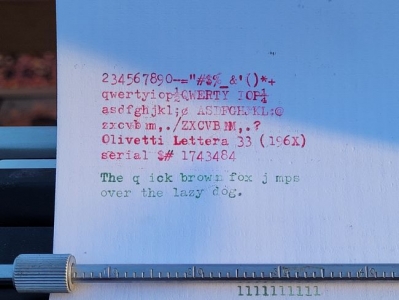 234567890-="#$%_&'()*+
qwertyiop½QWERTY IOP¼
asdfghjkl;¢ ASDFGHJKL:@
zxcvb nm,./ZXCVB NM,.?
Olivetti Lettera 33 (196X)
serial $# 1743484
The q ick brown fox j mps
over the lazy dog.
1111111111